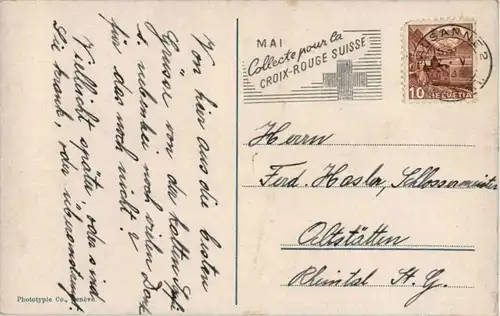 Von hier aus die besten
Grüsse von der
u. nebenbei noch vielen Dank
für das
Vielleicht später, oder sind
Sie krank, oder überanstrengt
Phototypie Co., Genève.
MAI
Collecte pour la
CROIX-ROUGE SUISSE
LAUSANNE 2
10 HELVETIA
Herrn
Ferd. Hasler, Schlossermeister
Altstätten
Rheintal St. G.